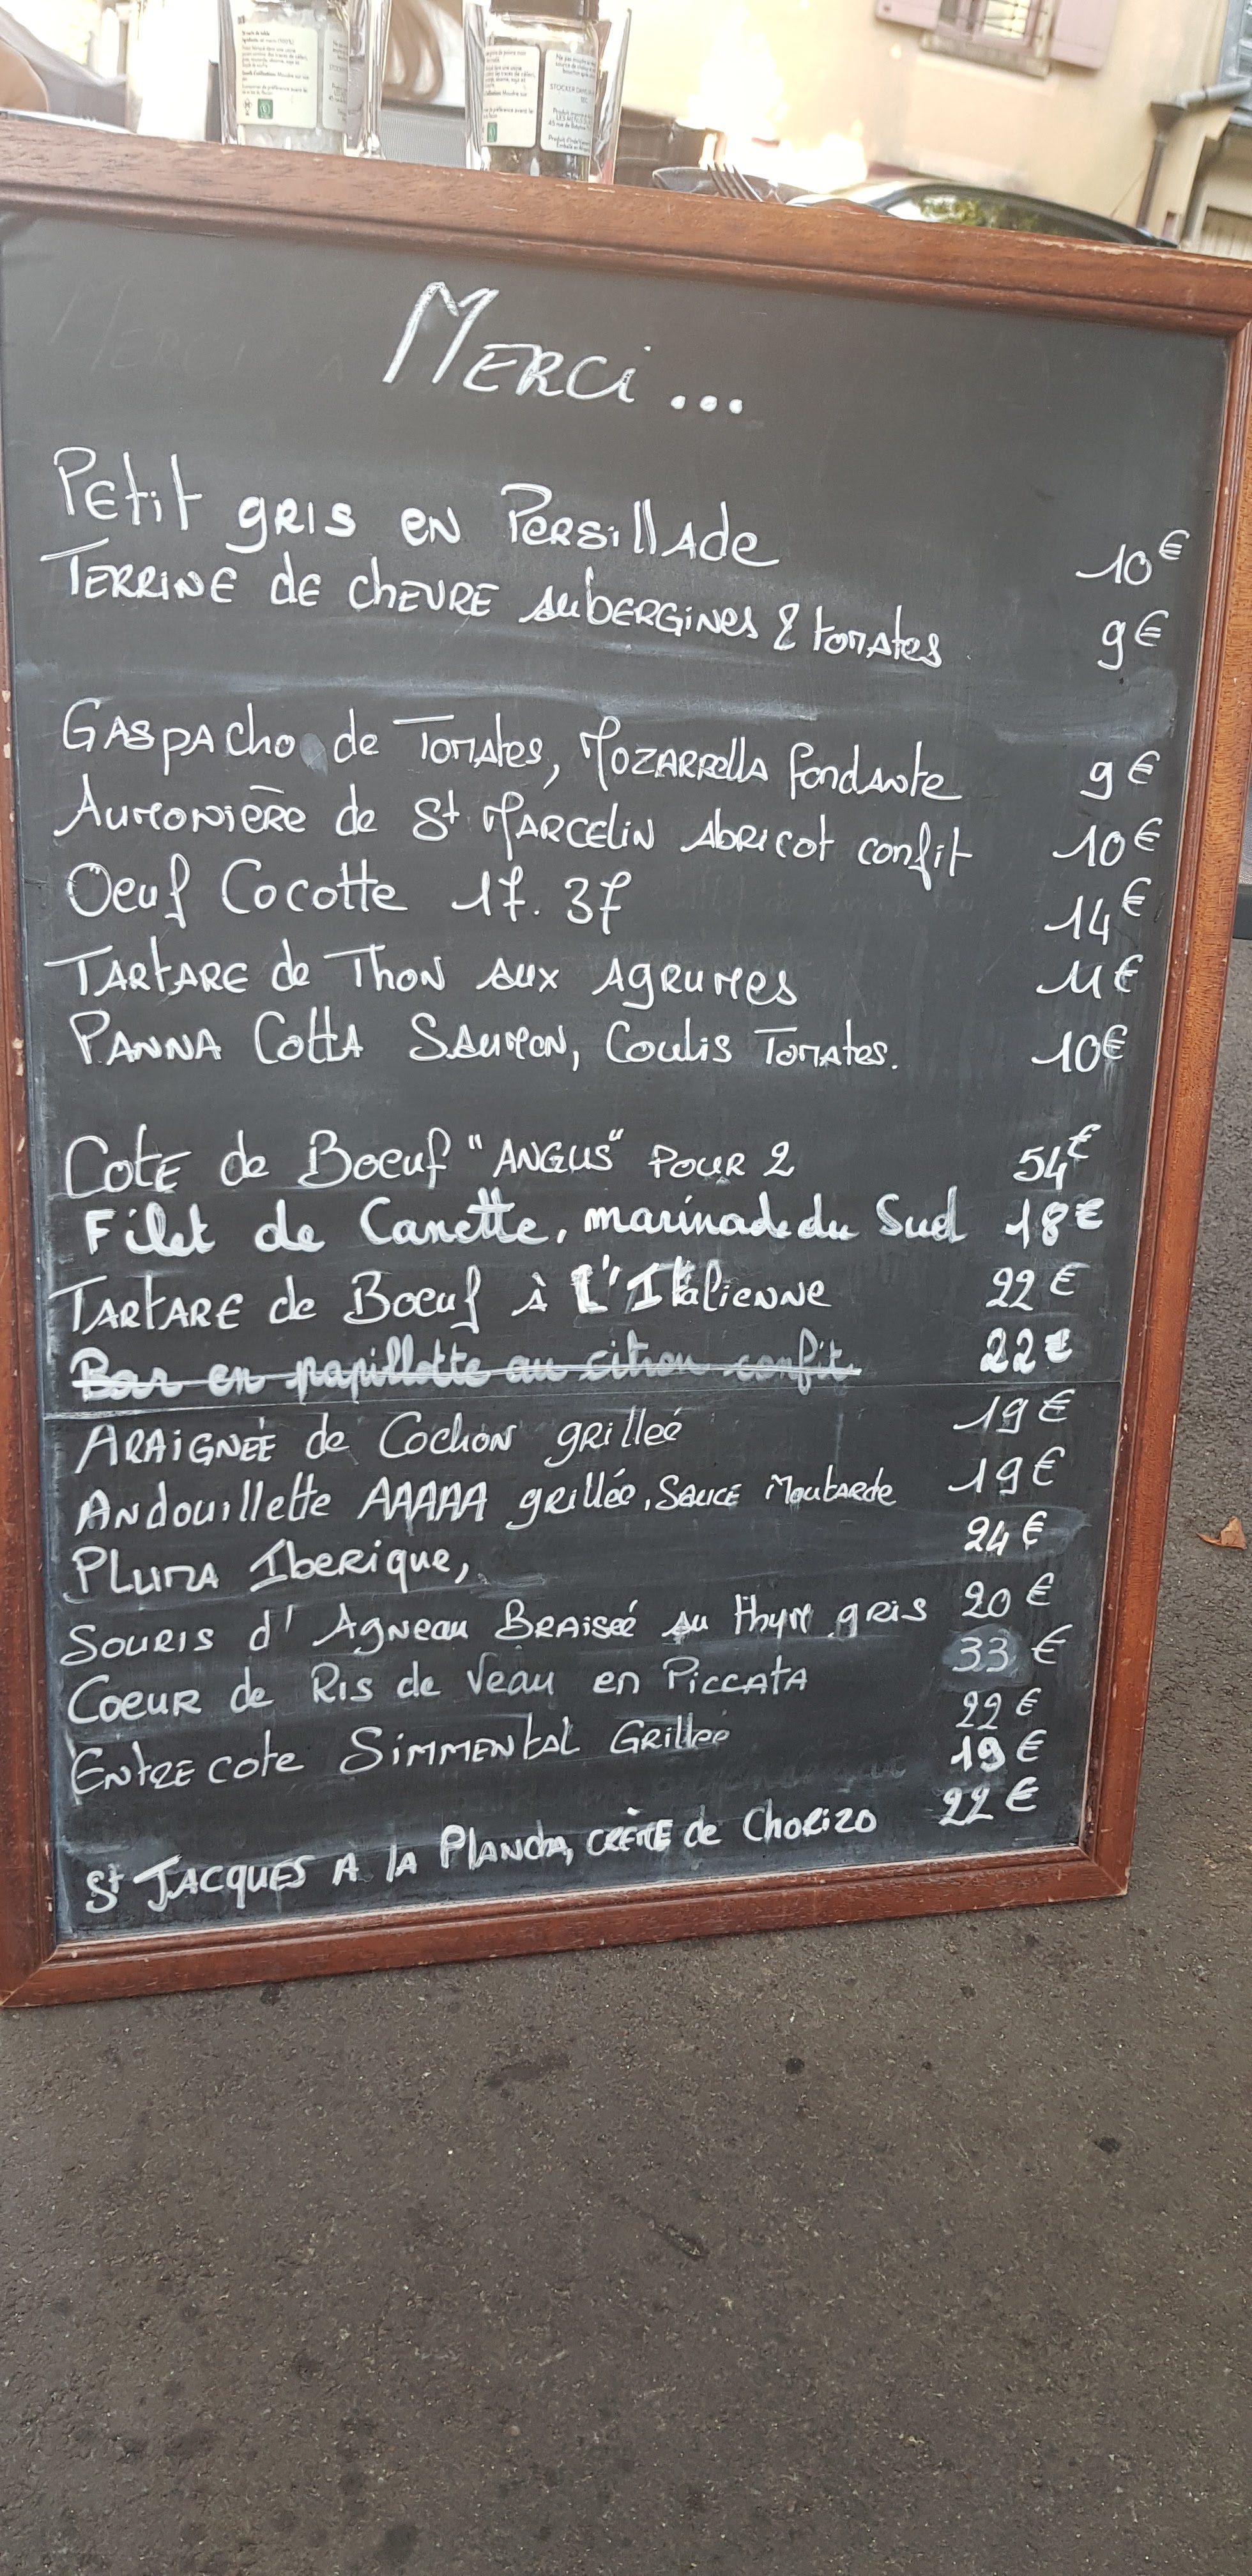 MERCi...
Petit gRIS eN PeRSillAde 10€
TERRINE dE chEVRE AubERGiNes & tomates 9€
GASpAcho de Tomates, MOZARRellA fondANte 9€
AumoNiÈRe de St MARCeliN AbRicot confit 10€
Oeuf Cocotte 1f. 3f 14€
TARtARE de ThoN Aux AgRumes 11€
PANNA CottA SAumoN, Coulis Tomates. 10€
Cote de Boeuf "ANGUS" POUR 2 54€
Filet de Canette, marinade du Sud 18€
TARtARE de Boeuf À L'ItalieNNe 22€
Bar en papillotte au citron confit 22€
ARAiGNÉE de CochoN gRilleé 19€
ANdouillette AAAAA gRillée, SAuce MoutaRde 19€
PLUmA IbeRique, 24€
SouRis d'AgNeau BRAiseé Au thym gRiS 20€
CoeuR de Ris de Veau en PiccAtA 33€
ENtREcote SiMMENtAL GRilleé 22€
19€
St JACQUES A lA PlANchA, CRÈmE de ChoRizo 22€
STOCKER DANS